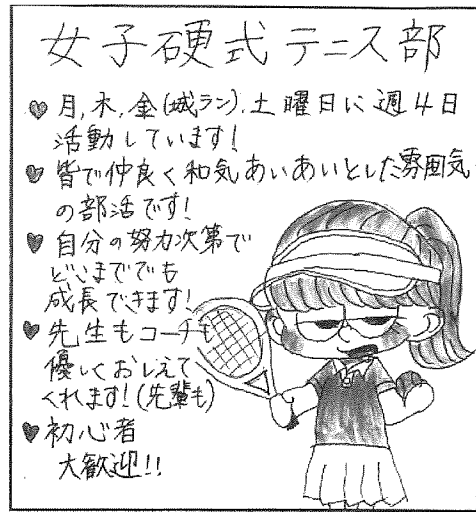 女子硬式テニス部
月,木,金(城ラン),土曜日に週4日
活動しています!
皆で仲良く和気あいあいとした雰囲気
の部活です!
自分の努力次第で
どこまででも
成長できます!
先生もコーチも
優しくおしえて
くれます!(先輩も)
初心者
大歓迎!!